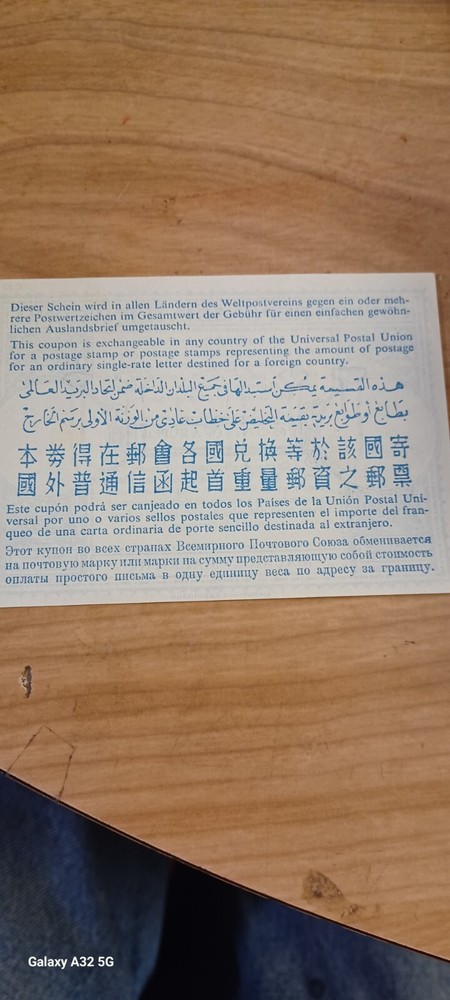 Dieser Schein wird in allen Ländern des Weltpostvereins gegen ein oder meh-
rere Postwertzeichen im Gesamtwert der Gebühr für einen einfachen gewöhn-
lichen Auslandsbrief umgetauscht.
This coupon is exchangeable in any country of the Universal Postal Union
for a postage stamp or postage stamps representing the amount of postage
for an ordinary single-rate letter destined for a foreign country.
هذه القسيمة يمكن استبدالها في جميع البلدان الداخلة ضمن اتحاد البريد العالمى
بطابع أو طوابع بريدية بقيمة التخليص على خطاب عادى من الوزنة الأولى برسم الخارج
本券得在郵會各國兌換等於該國寄
國外普通信函起首重量郵資之郵票
Este cupón podrá ser canjeado en todos los Países de la Unión Postal Uni-
versal por uno o varios sellos postales que representen el importe del fran-
queo de una carta ordinaria de porte sencillo destinada al extranjero.
Этот купон во всех странах Всемирного Почтового Союза обменивается
на почтовую марку или марки на сумму представляющую собой стоимость
оплаты простого письма в одну единицу веса по адресу за границу.
Galaxy A32 5G